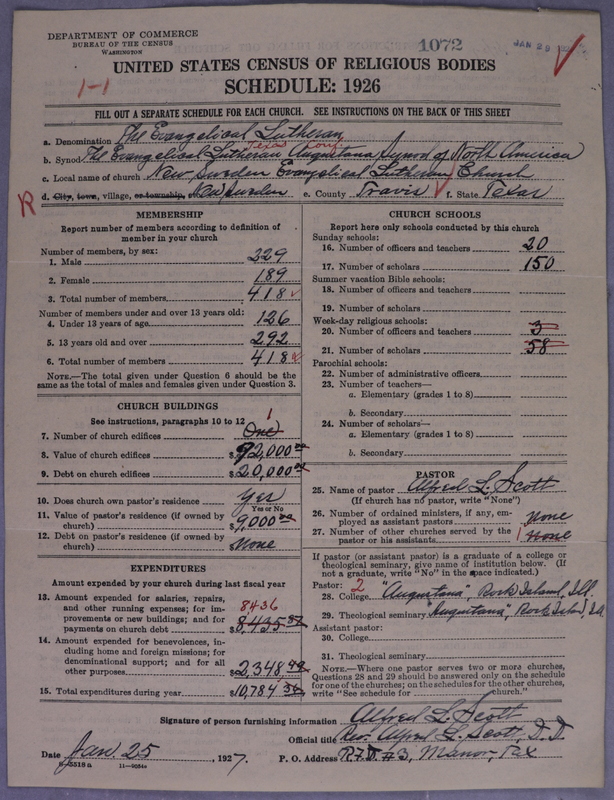 DEPARTMENT OF COMMERCE
BUREAU OF THE CENSUS
WASHINGTON
1072
JAN 29
1-1
UNITED STATES CENSUS OF RELIGIOUS BODIES
SCHEDULE: 1926
FILL OUT A SEPARATE SCHEDULE FOR EACH CHURCH. SEE INSTRUCTIONS ON THE BACK OF THIS SHEET
a. Denomination The Evangelical Lutheran
Texas Conf.
b. Synod The Evangelical Lutheran Augustana Synod of North America
c. Local name of church New Sweden Evangelical Lutheran Church
R
d. City, town, village, or township, etc. New Sweden e. County Travis f. State Texas
MEMBERSHIP
Report number of members according to definition of
member in your church
Number of members, by sex:
1. Male 229
2. Female 189
3. Total number of members 418
Number of members under and over 13 years old:
4. Under 13 years of age 126
5. 13 years old and over 292
6. Total number of members 418
NOTE.—The total given under Question 6 should be the
same as the total of males and females given under Question 3.
CHURCH BUILDINGS
See instructions, paragraphs 10 to 12
1
7. Number of church edifices One
8. Value of church edifices $92,000 00
9. Debt on church edifices $20,000 00
10. Does church own pastor's residence Yes
Yes or No
11. Value of pastor's residence (if owned by
church) $9,000 00
12. Debt on pastor's residence (if owned by
church) None
EXPENDITURES
Amount expended by your church during last fiscal year
13. Amount expended for salaries, repairs,
and other running expenses; for im-
provements or new buildings; and for
payments on church debt
8436
$8,435
14. Amount expended for benevolences, in-
cluding home and foreign missions; for
denominational support; and for all
other purposes 2,348
15. Total expenditures during year $10,784
CHURCH SCHOOLS
Report here only schools conducted by this church
Sunday schools:
16. Number of officers and teachers 20
17. Number of scholars 150
Summer vacation Bible schools:
18. Number of officers and teachers
19. Number of scholars
Week-day religious schools:
20. Number of officers and teachers 3
21. Number of scholars 58
Parochial schools:
22. Number of administrative officers
23. Number of teachers—
a. Elementary (grades 1 to 8)
b. Secondary
24. Number of scholars—
a. Elementary (grades 1 to 8)
b. Secondary
PASTOR
25. Name of pastor Alfred L. Scott
(If church has no pastor, write "None")
26. Number of ordained ministers, if any, em-
ployed as assistant pastors None
27. Number of other churches served by the
pastor or his assistants 1 None
If pastor (or assistant pastor) is a graduate of a college or
theological seminary, give name of institution below. (If
not a graduate, write "No" in the space indicated.)
Pastor: 2
28. College "Augustana", Rock Island, Ill.
29. Theological seminary "Augustana", Rock Island, Ill.
Assistant pastor:
30. College
31. Theological seminary
NOTE.—Where one pastor serves two or more churches,
Questions 28 and 29 should be answered only on the schedule
for one of the churches; on the schedules for the other churches,
write "See schedule for church."
Signature of person furnishing information Alfred L. Scott
Official title Rev. Alfred L. Scott, D.D.
Date Jan. 25, 1927. P. O. Address R.F.D. #3, Manor, Tex
8—5518 a 11—9054a